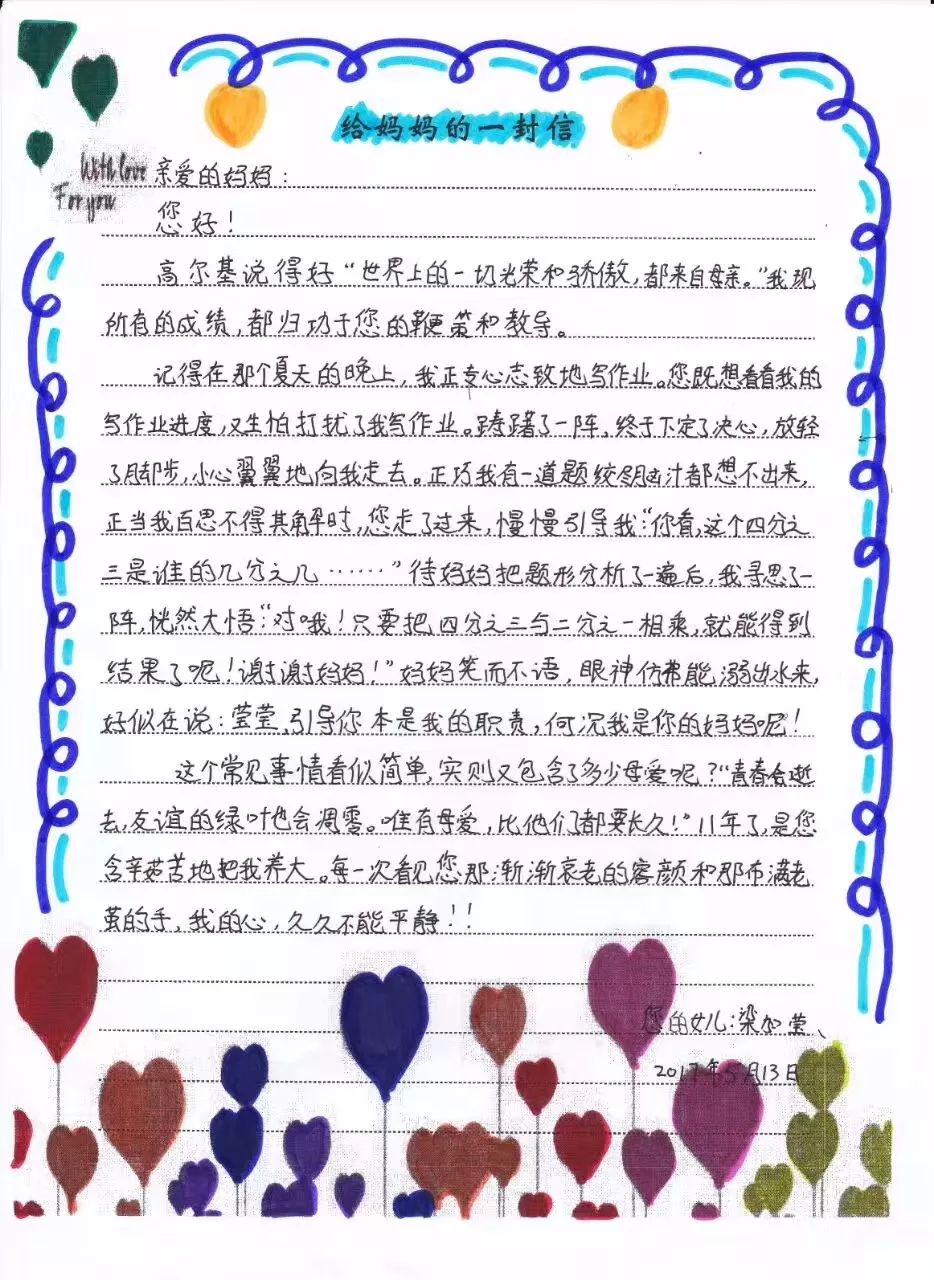 给妈妈的一封信
With love
For you
亲爱的妈妈：
您好！
高尔基说得好“世界上的一切光荣和骄傲，都来自母亲。”我现
所有的成绩，都归功于您的鞭策和教导。
记得在那个夏天的晚上，我正专心志致地写作业。您既想看看我的
写作业进度，又生怕打扰了我写作业。踌躇了一阵，终于下定了决心，放轻
了脚步，小心翼翼地向我走去。正巧我有一道题绞尽脑汁都想不出来，
正当我百思不得其解时，您走了过来，慢慢引导我：“你看，这个四分之
三是谁的几分之几……”待妈妈把题形分析了一遍后，我寻思了一
阵，恍然大悟：“对哦！只要把四分之三与二分之一相乘，就能得到
结果了呢！谢谢妈妈！”妈妈笑而不语，眼神仿弗能溺出水来，
好似在说：莹莹，引导你本是我的职责，何况我是你的妈妈呢！
这个常见事情看似简单，实则又包含了多少母爱呢？“青春会逝
去，友谊的绿叶也会凋零。唯有母爱，比他们都要长久！”11年了，是您
含辛茹苦地把我养大。每一次看见您那渐渐衰老的容颜和那布满老
茧的手，我的心，久久不能平静！！
您的女儿：梁加莹
2017年5月13日